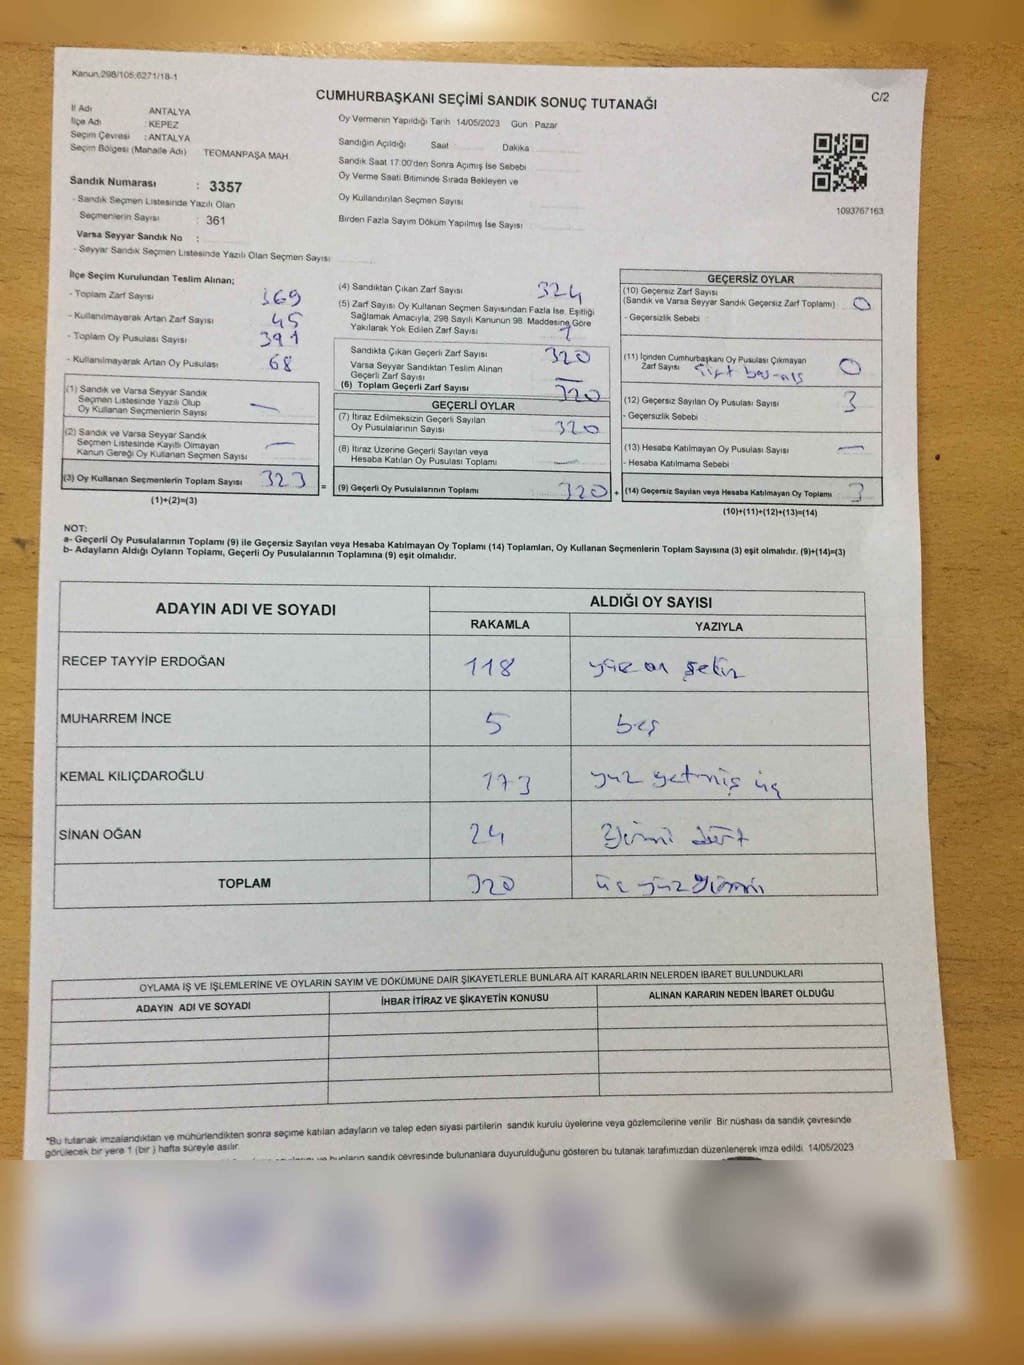 Kanun,298/105,6271/18-1
C/2
CUMHURBAŞKANI SEÇİMİ SANDIK SONUÇ TUTANAĞI
İl Adı : ANTALYA
İlçe Adı : KEPEZ
Seçim Çevresi : ANTALYA
Seçim Bölgesi (Mahalle Adı) TEOMANPAŞA MAH.
Sandık Numarası : 3357
- Sandık Seçmen Listesinde Yazılı Olan
Seçmenlerin Sayısı : 361
Varsa Seyyar Sandık No :
- Seyyar Sandık Seçmen Listesinde Yazılı Olan Seçmen Sayısı
Oy Vermenin Yapıldığı Tarih 14/05/2023 Gün : Pazar
Sandığın Açıldığı Saat Dakika
Sandık Saat 17:00'den Sonra Açımış İse Sebebi
Oy Verme Saati Bitiminde Sırada Bekleyen ve
Oy Kullandırılan Seçmen Sayısı
Birden Fazla Sayım Döküm Yapılmış İse Sayısı
1093767163
İlçe Seçim Kurulundan Teslim Alınan;
- Toplam Zarf Sayısı 369
- Kullanılmayarak Artan Zarf Sayısı 45
- Toplam Oy Pusulası Sayısı 391
- Kullanılmayarak Artan Oy Pusulası 68
(1) Sandık ve Varsa Seyyar Sandık
Seçmen Listesinde Yazılı Olup
Oy Kullanan Seçmenlerin Sayısı —
(2) Sandık ve Varsa Seyyar Sandık
Seçmen Listesinde Kayıtlı Olmayan
Kanun Gereği Oy Kullanan Seçmen Sayısı —
(3) Oy Kullanan Seçmenlerin Toplam Sayısı 323 =
(1)+(2)=(3)
(4) Sandıktan Çıkan Zarf Sayısı 324
(5) Zarf Sayısı Oy Kullanan Seçmen Sayısından Fazla İse, Eşitliği
Sağlamak Amacıyla, 298 Sayılı Kanunun 98. Maddesine Göre
Yakılarak Yok Edilen Zarf Sayısı 1
Sandıkta Çıkan Geçerli Zarf Sayısı 320
Varsa Seyyar Sandıktan Teslim Alınan
Geçerli Zarf Sayısı —
(6) Toplam Geçerli Zarf Sayısı 320
GEÇERLİ OYLAR
(7) İtiraz Edilmeksizin Geçerli Sayılan
Oy Pusulalarının Sayısı 320
(8) İtiraz Üzerine Geçerli Sayılan veya
Hesaba Katılan Oy Pusulası Toplamı —
(9) Geçerli Oy Pusulalarının Toplamı 320 +
GEÇERSİZ OYLAR
(10) Geçersiz Zarf Sayısı
(Sandık ve Varsa Seyyar Sandık Geçersiz Zarf Toplamı) 0
- Geçersizlik Sebebi
(11) İçinden Cumhurbaşkanı Oy Pusulası Çıkmayan
Zarf Sayısı 0
(12) Geçersiz Sayılan Oy Pusulası Sayısı 3
- Geçersizlik Sebebi
(13) Hesaba Katılmayan Oy Pusulası Sayısı —
- Hesaba Katılmama Sebebi
(14) Geçersiz Sayılan veya Hesaba Katılmayan Oy Toplamı 3
(10)+(11)+(12)+(13)=(14)
NOT:
a- Geçerli Oy Pusulalarının Toplamı (9) ile Geçersiz Sayılan veya Hesaba Katılmayan Oy Toplamı (14) Toplamları, Oy Kullanan Seçmenlerin Toplam Sayısına (3) eşit olmalıdır. (9)+(14)=(3)
b- Adayların Aldığı Oyların Toplamı, Geçerli Oy Pusulalarının Toplamına (9) eşit olmalıdır.
ADAYIN ADI VE SOYADI ALDIĞI OY SAYISI
RAKAMLA YAZIYLA
RECEP TAYYİP ERDOĞAN 118 yüz on sekiz
MUHARREM İNCE 5 beş
KEMAL KILIÇDAROĞLU 173 yüz yetmiş üç
SİNAN OĞAN 24 yirmi dört
TOPLAM 320 üç yüz yirmi
OYLAMA İŞ VE İŞLEMLERİNE VE OYLARIN SAYIM VE DÖKÜMÜNE DAİR ŞİKAYETLERLE BUNLARA AİT KARARLARIN NELERDEN İBARET BULUNDUKLARI
ADAYIN ADI VE SOYADI İHBAR İTİRAZ VE ŞİKAYETİN KONUSU ALINAN KARARIN NEDEN İBARET OLDUĞU
*Bu tutanak imzalandıktan ve mühürlendikten sonra seçime katılan adayların ve talep eden siyasi partilerin sandık kurulu üyelerine veya gözlemcilerine verilir. Bir nüshası da sandık çevresinde
görülecek bir yere 1 (bir) hafta süreyle asılır.
bunların sandık çevresinde bulunanlara duyurulduğunu gösteren bu tutanak tarafımızdan düzenlenerek imza edildi. 14/05/2023